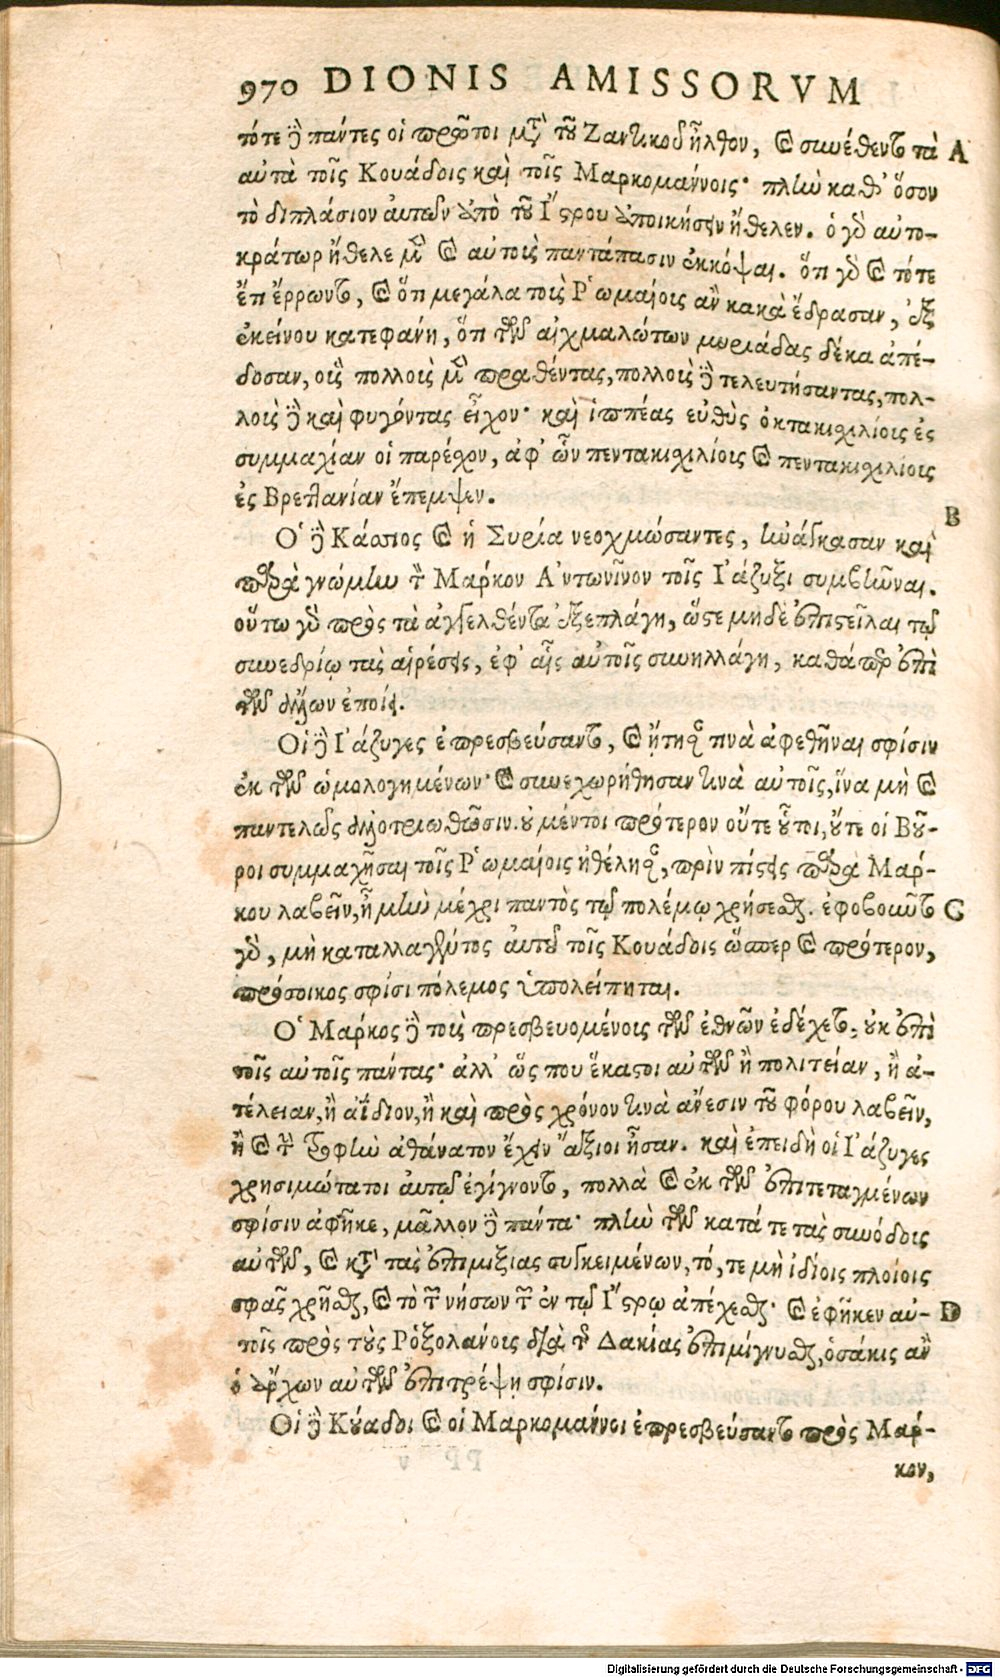 970 DIONIS AMISSORVM
τότε δὲ πάντες οἱ πρῶτοι μετὰ τοῦ Ζαντικοῦ ἦλθον, καὶ συνέθεντο τὰ A
αὐτὰ τοῖς Κουάδοις καὶ τοῖς Μαρκομάννοις· πλὴν καθ' ὅσον
τὸ διπλάσιον αὐτῶν ἀπὸ τοῦ Ἴστρου ἀποικήσειν ἤθελεν. ὁ γὰρ αὐτο-
κράτωρ ἤθελε μὲν καὶ αὐτοὺς παντάπασιν ἐκκόψαι. ὅτι γὰρ καὶ τότε
ἔτι ἔρρωντο, καὶ ὅτι μεγάλα τοὺς Ῥωμαίους ἂν κακὰ ἔδρασαν, ἐξ
ἐκείνου κατεφάνη, ὅτι τῶν αἰχμαλώτων μυριάδας δέκα ἀπέ-
δοσαν, οὓς πολλοὺς μὲν πραθέντας, πολλοὺς δὲ τελευτήσαντας, πολ-
λοὺς δὲ καὶ φυγόντας εἶχον· καὶ ἱππέας εὐθὺς ὀκτακιχιλίους ἐς
συμμαχίαν οἱ παρέχον, ἀφ' ὧν πεντακιχιλίους καὶ πεντακιχιλίους
ἐς Βρεττανίαν ἔπεμψεν.
B
Ὁ δὲ Κάσσιος καὶ ἡ Συρία νεοχμώσαντες, ἠνάγκασαν καὶ
παρὰ γνώμην τὸν Μάρκον Ἀντωνῖνον τοῖς Ἰάζυξι συμβῆναι.
οὕτω γὰρ πρὸς τὰ ἀγγελθέντα ἐξεπλάγη, ὥστε μηδὲ ἐπιστεῖλαι τῷ
συνεδρίῳ τὰς αἱρέσεις, ἐφ' αἷς αὐτοῖς συνηλλάγη, καθάπερ ἐπὶ
τῶν ἄλλων ἐποίει.
Οἱ δὲ Ἰάζυγες ἐπρεσβεύσαντο, καὶ ᾔτησαν τινὰ ἀφεθῆναι σφίσιν
ἐκ τῶν ὡμολογημένων· καὶ συνεχωρήθησαν τινὰ αὐτοῖς, ἵνα μὴ καὶ
παντελῶς ἀλλοτριωθῶσιν. οὐ μέντοι πρότερον οὔτε οὗτοι, οὔτε οἱ Βοῦ-
ροι συμμαχῆσαι τοῖς Ῥωμαίοις ἠθέλησαν, πρὶν πίστεις παρὰ Μάρ-
κου λαβεῖν, ἦ μὴν μέχρι παντὸς τῷ πολέμῳ χρήσεσθαι. ἐφοβοῦντο C
γὰρ, μὴ καταλλαγέντος αὐτοῦ τοῖς Κουάδοις ὥσπερ καὶ πρότερον,
πρόσοικος σφίσι πόλεμος ὑπολείπηται.
Ὁ Μάρκος δὲ τοὺς πρεσβευομένους τῶν ἐθνῶν ἐδέχετο· οὐκ ἐπὶ
τοῖς αὐτοῖς πάντας· ἀλλ' ὥς που ἕκαστοι αὐτῶν ἢ πολιτείαν, ἢ ἀ-
τέλειαν, ἢ ἀΐδιον, ἢ καὶ πρὸς χρόνον τινὰ ἄνεσιν τοῦ φόρου λαβεῖν,
ἢ καὶ τὴν τροφὴν ἀθάνατον ἔχειν ἄξιοι ἦσαν. καὶ ἐπειδὴ οἱ Ἰάζυγες
χρησιμώτατοι αὐτῷ ἐγίγνοντο, πολλὰ καὶ ἐκ τῶν ἐπιτεταγμένων
σφίσιν ἀφῆκε, μᾶλλον δὲ πάντα· πλὴν τῶν κατά τε τὰς συνόδους
αὐτῶν, καὶ κατὰ τὰς ἐπιμιξίας συγκειμένων, τό, τε μὴ ἰδίοις πλοίοις
σφᾶς χρῆσθαι, καὶ τὸ τῶν νήσων τῶν ἐν τῷ Ἴστρῳ ἀπέχεσθαι· καὶ ἐφῆκεν αὐ- D
τοῖς πρὸς τοὺς Ῥοξολάνους διὰ τῆς Δακίας ἐπιμίγνυσθαι, ὁσάκις ἂν
ὁ ἄρχων αὐτῶν ἐπιτρέψῃ σφίσιν.
Οἱ δὲ Κούαδοι καὶ οἱ Μαρκομάννοι ἐπρεσβεύσαντο πρὸς Μάρ-
κον,
Digitalisierung gefördert durch die Deutsche Forschungsgemeinschaft - DFG